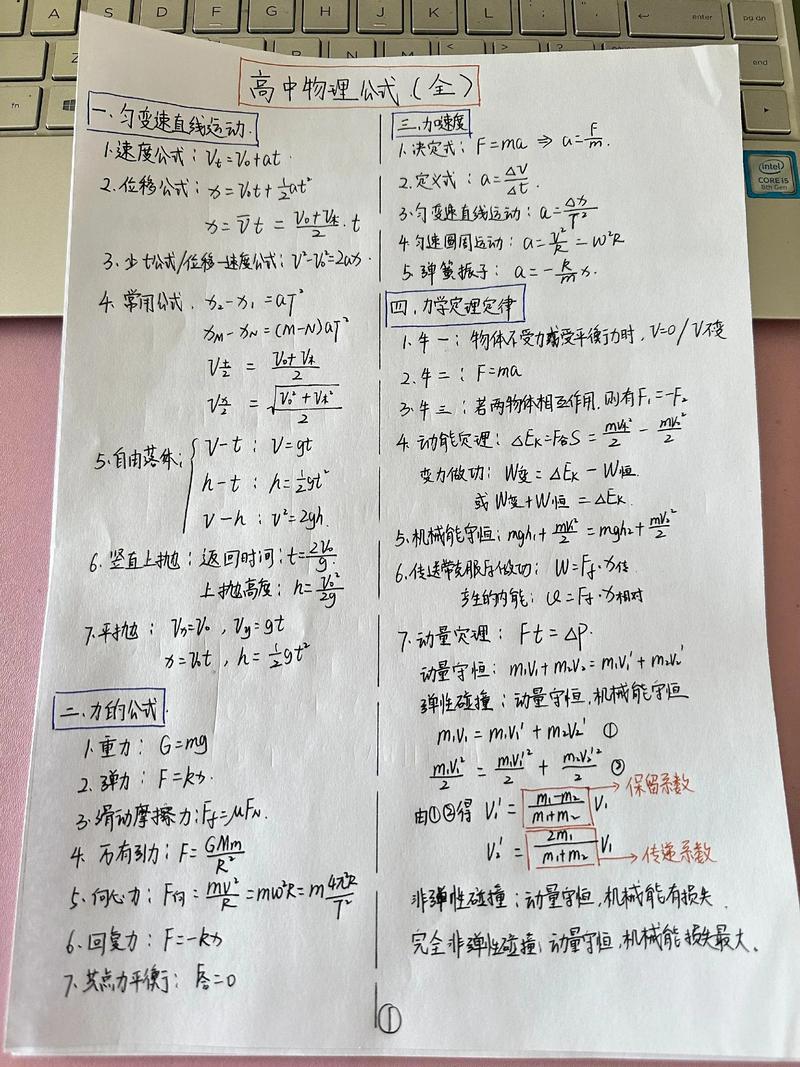 A S D F G H J K L ; enter pg dn
Z end
fn
intel
CORE i5
8th Gen
高中物理公式(全)
一.匀变速直线运动.
1.速度公式: Vt=V0+at.
2.位移公式: x=V0t+½at²
x=V̅t = (V0+V末)/2 · t
3.少t公式/位移-速度公式: V²-V0²=2ax
4.常用公式. x2-x1=aT²
xM-xN=(M-N)aT²
V t/2 = (V0+V末)/2
V x/2 = √((V0²+V末²)/2)
5.自由落体: { V-t: V=gt
h-t: h=½gt²
V-h: V²=2gh.
6.竖直上抛: 返回时间: t=2V0/g.
上抛高度: h=V0²/2g
7.平抛: Vx=V0, Vy=gt
x=V0t, h=½gt²
二.力的公式.
1.重力: G=mg
2.弹力: F=kx.
3.滑动摩擦力: Ff=μFN.
4.万有引力: F=GMm/R²
5.向心力: F向=mV²/R=mω²R=m4π²R/T²
6.回复力: F=-kx
7.共点力平衡: F合=0
三.加速度
1.决定式: F=ma ⇒ a=F/m.
2.定义式: a=ΔV/Δt.
3.匀变速直线运动: a=Δx/T²
4.匀速圆周运动: a=V²/R=ω²R
5.弹簧振子: a=-k/m x.
四.力学定理定律
1.牛一: 物体不受力或受平衡力时, V=0/V不变
2.牛二: F=ma
3.牛三: 若两物体相互作用,则有F1=-F2
4.动能定理: ΔEK=F合S=mVt²/2-mV0²/2
变力做功: W变=ΔEK-W恒.
或W变+W恒=ΔEK.
5.机械能守恒: mgh1+mV1²/2=mgh2+mV2²/2
6.传送带克服Ff做功: W=Ff·x传
产生的内能: Q=Ff·x相对
7.动量定理: Ft=ΔP.
动量守恒: m1V1+m2V2=m1V1'+m2V2'
弹性碰撞: 动量守恒,机械能守恒
m1V1=m1V1'+m2V2' ①
m1V1²/2=m1V1'²/2+m2V2'²/2 ②
由①②得 V1'=(m1-m2)/(m1+m2) V1 →保留系数
V2'=2m1/(m1+m2) V1 →传递系数
非弹性碰撞: 动量守恒,机械能有损失.
完全非弹性碰撞: 动量守恒,机械能损失最大.
①